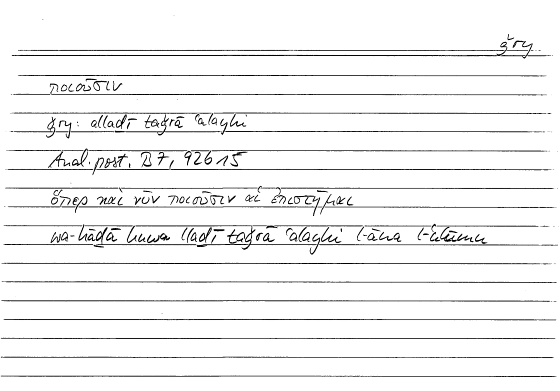 ǧry
ποιοῦσιν
ǧry: allaḏī taǧrā ʿalayhi
Anal. post. B7, 92b15
ὅπερ καὶ νῦν ποιοῦσιν αἱ ἐπιστῆμαι
wa-hāḏā huwa llaḏī taǧrā ʿalayhi l-āna l-ʿulūmu